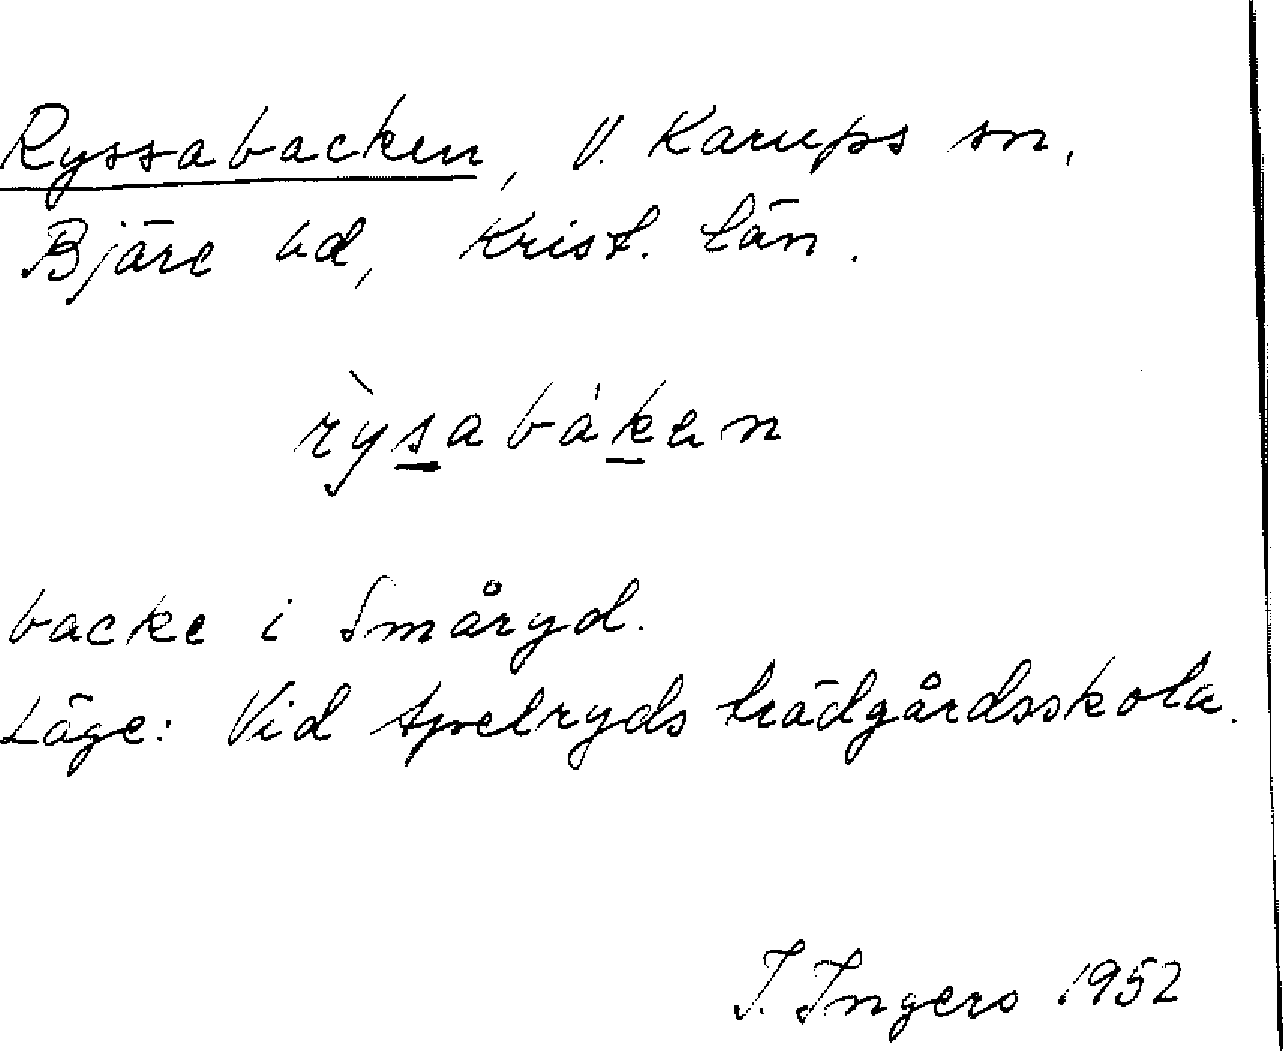 Ryssabacken, V. Karups sn,
Bjäre hd, Krist. län.
rỳsabákan
backe i Småryd.
Läge: Vid Apelryds trädgårdsskola.
I. Ingers 1952